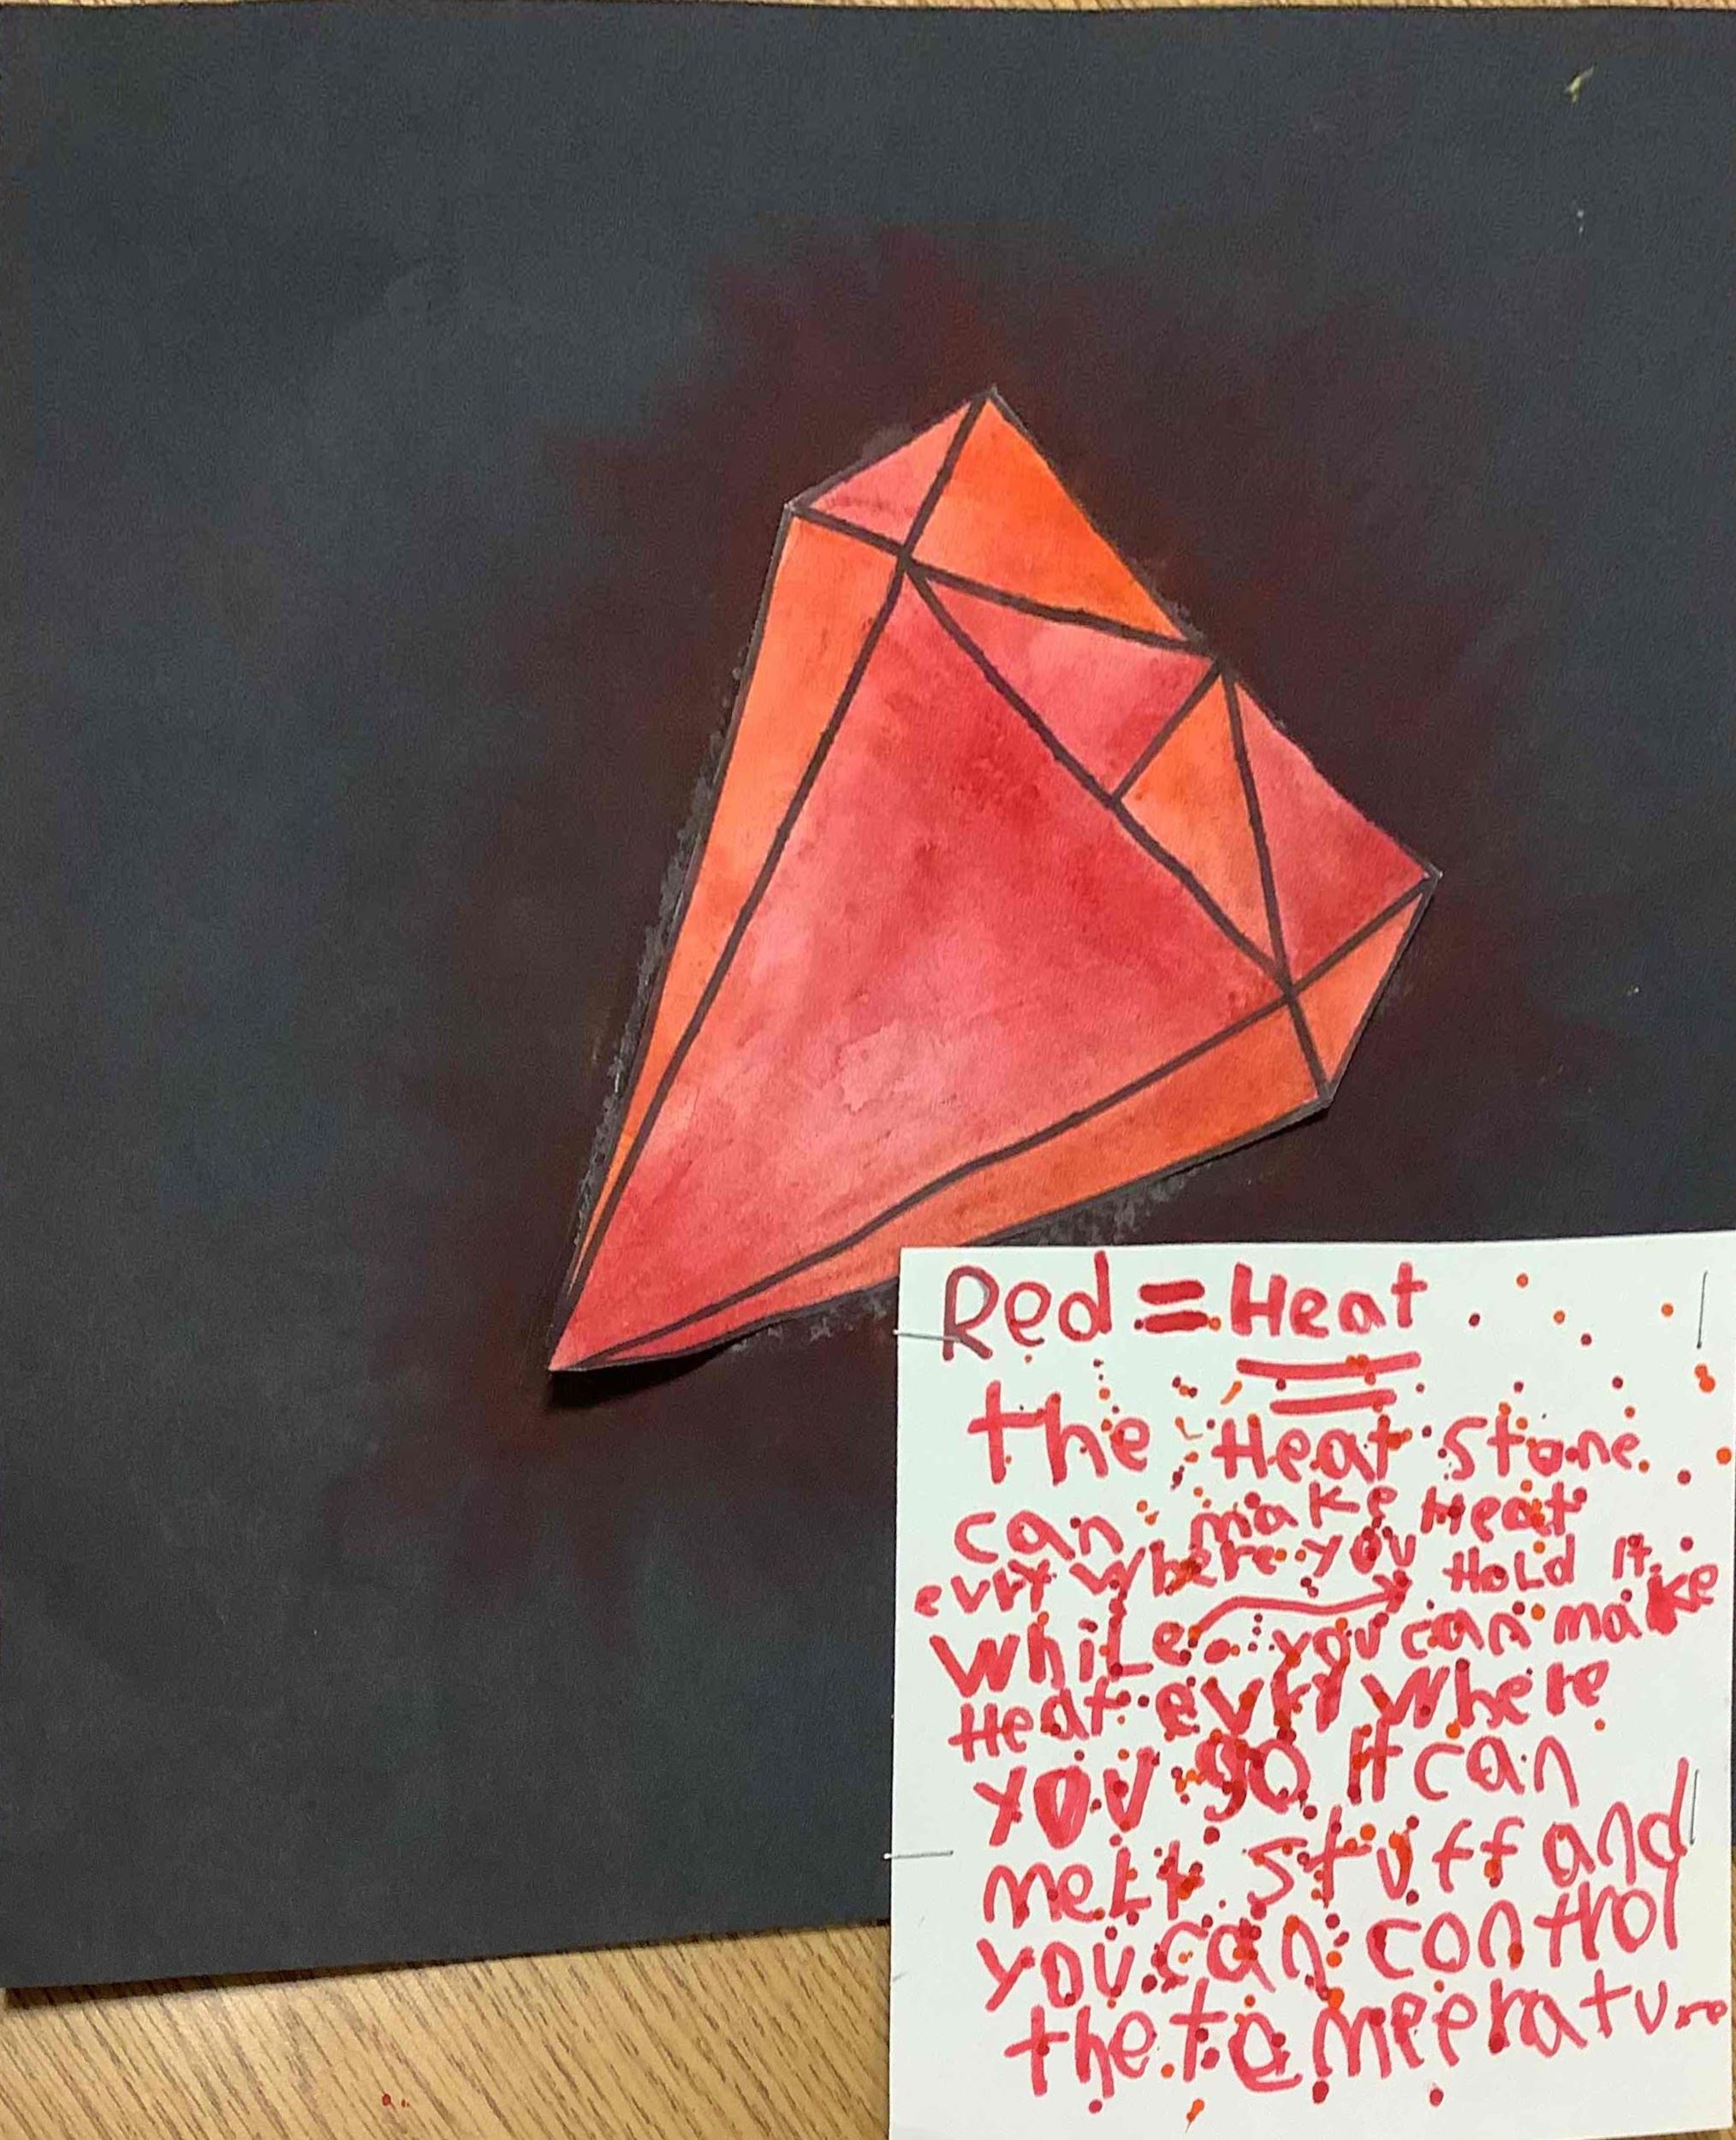 Red = Heat
the Heat Stone
can make Heat
evry where you Hold it
while you can make
Heat evry where
you go it can
melt stuff and
you can control
the temperature